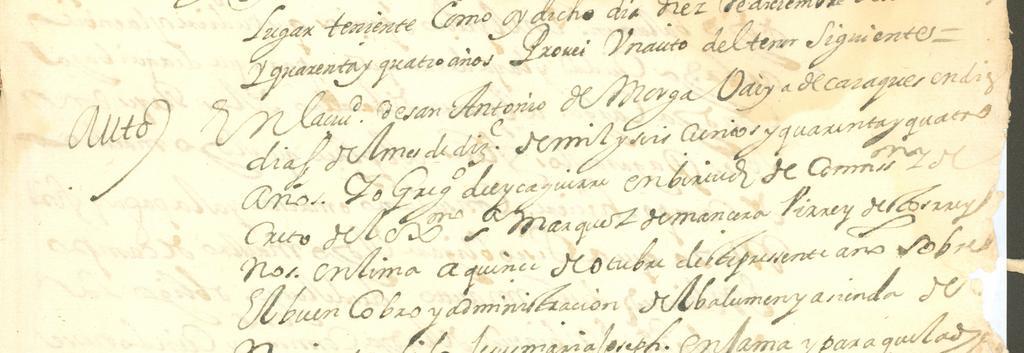 Lugar teniente Como oy dicho dia diez de diziembre
y quarenta y quatro años Provei Un auto del tenor siguientes =
Auto) En la ciud. de san Antonio de Morga Vaiya de caraques en diz
dias del mes de diz.e de mil y seis cientos y quarenta y quatro
años. Yo Greg.o de en birtud de Commiss.on
del Ex.mo s.r Marquez de mancera Virrey destos rrey
nos. en lima a quince de otubre deste presente año sobre
El buen Cobro y administracion del balumen y asienda de
Jesus maria Joseph. en lama y para que la